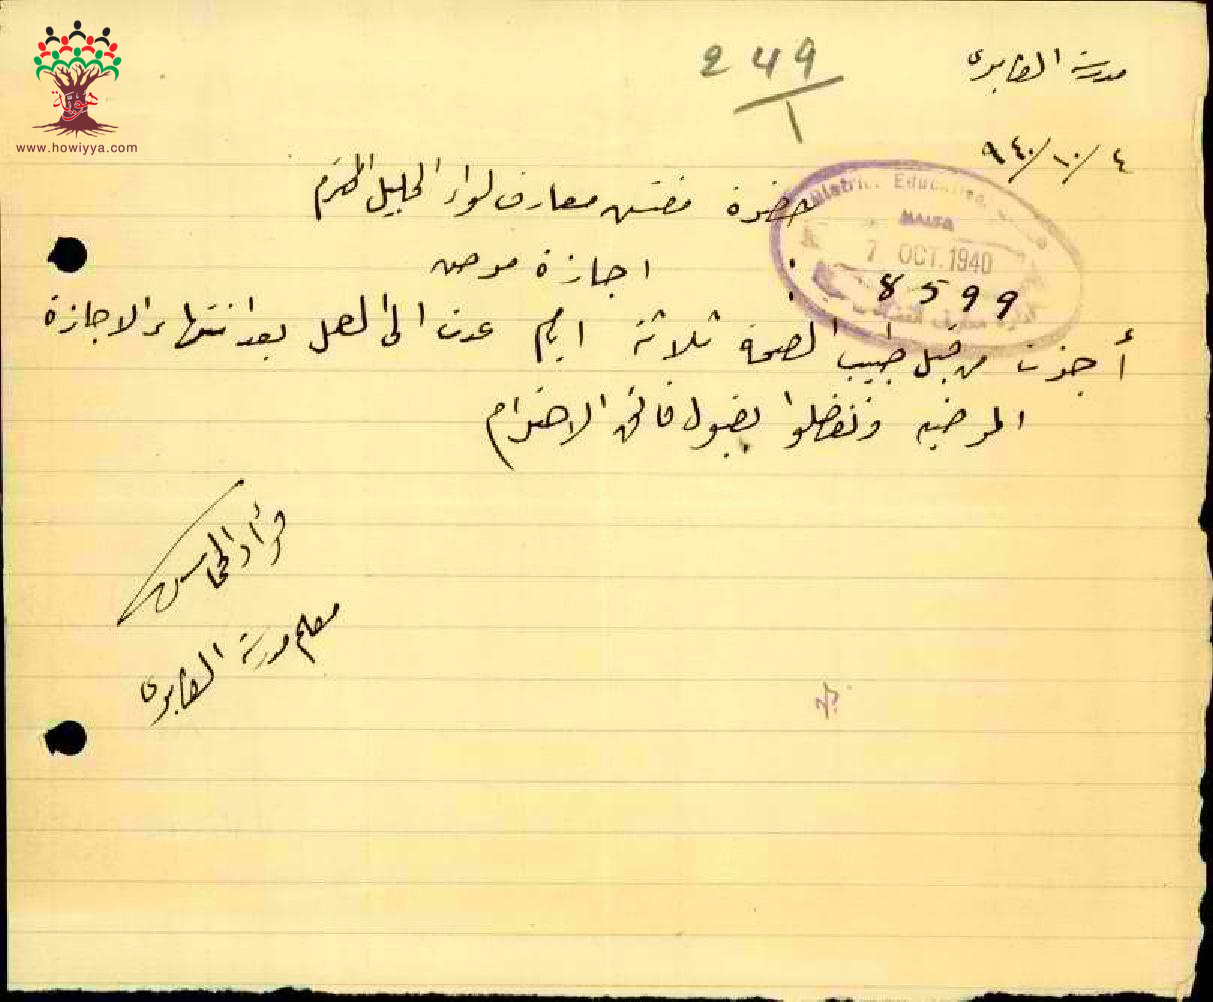 مدرسة الصابرى
249
1
٤/١٠/٩٤٠
حضرة مفتش معارف لواء الجليل المحترم
District Education
HAIFA
7 OCT. 1940
8599
ادارة معارف
اجازة مرضى
أجزت من قبل طبيب الصحة ثلاثة ايام عدت الى العمل بعد انتهاء الاجازة
المرضيه وتفضلوا بقبول فائق الاحترام
فؤاد
معلم مدرسة الصابرى
هوية
www.howiyya.com